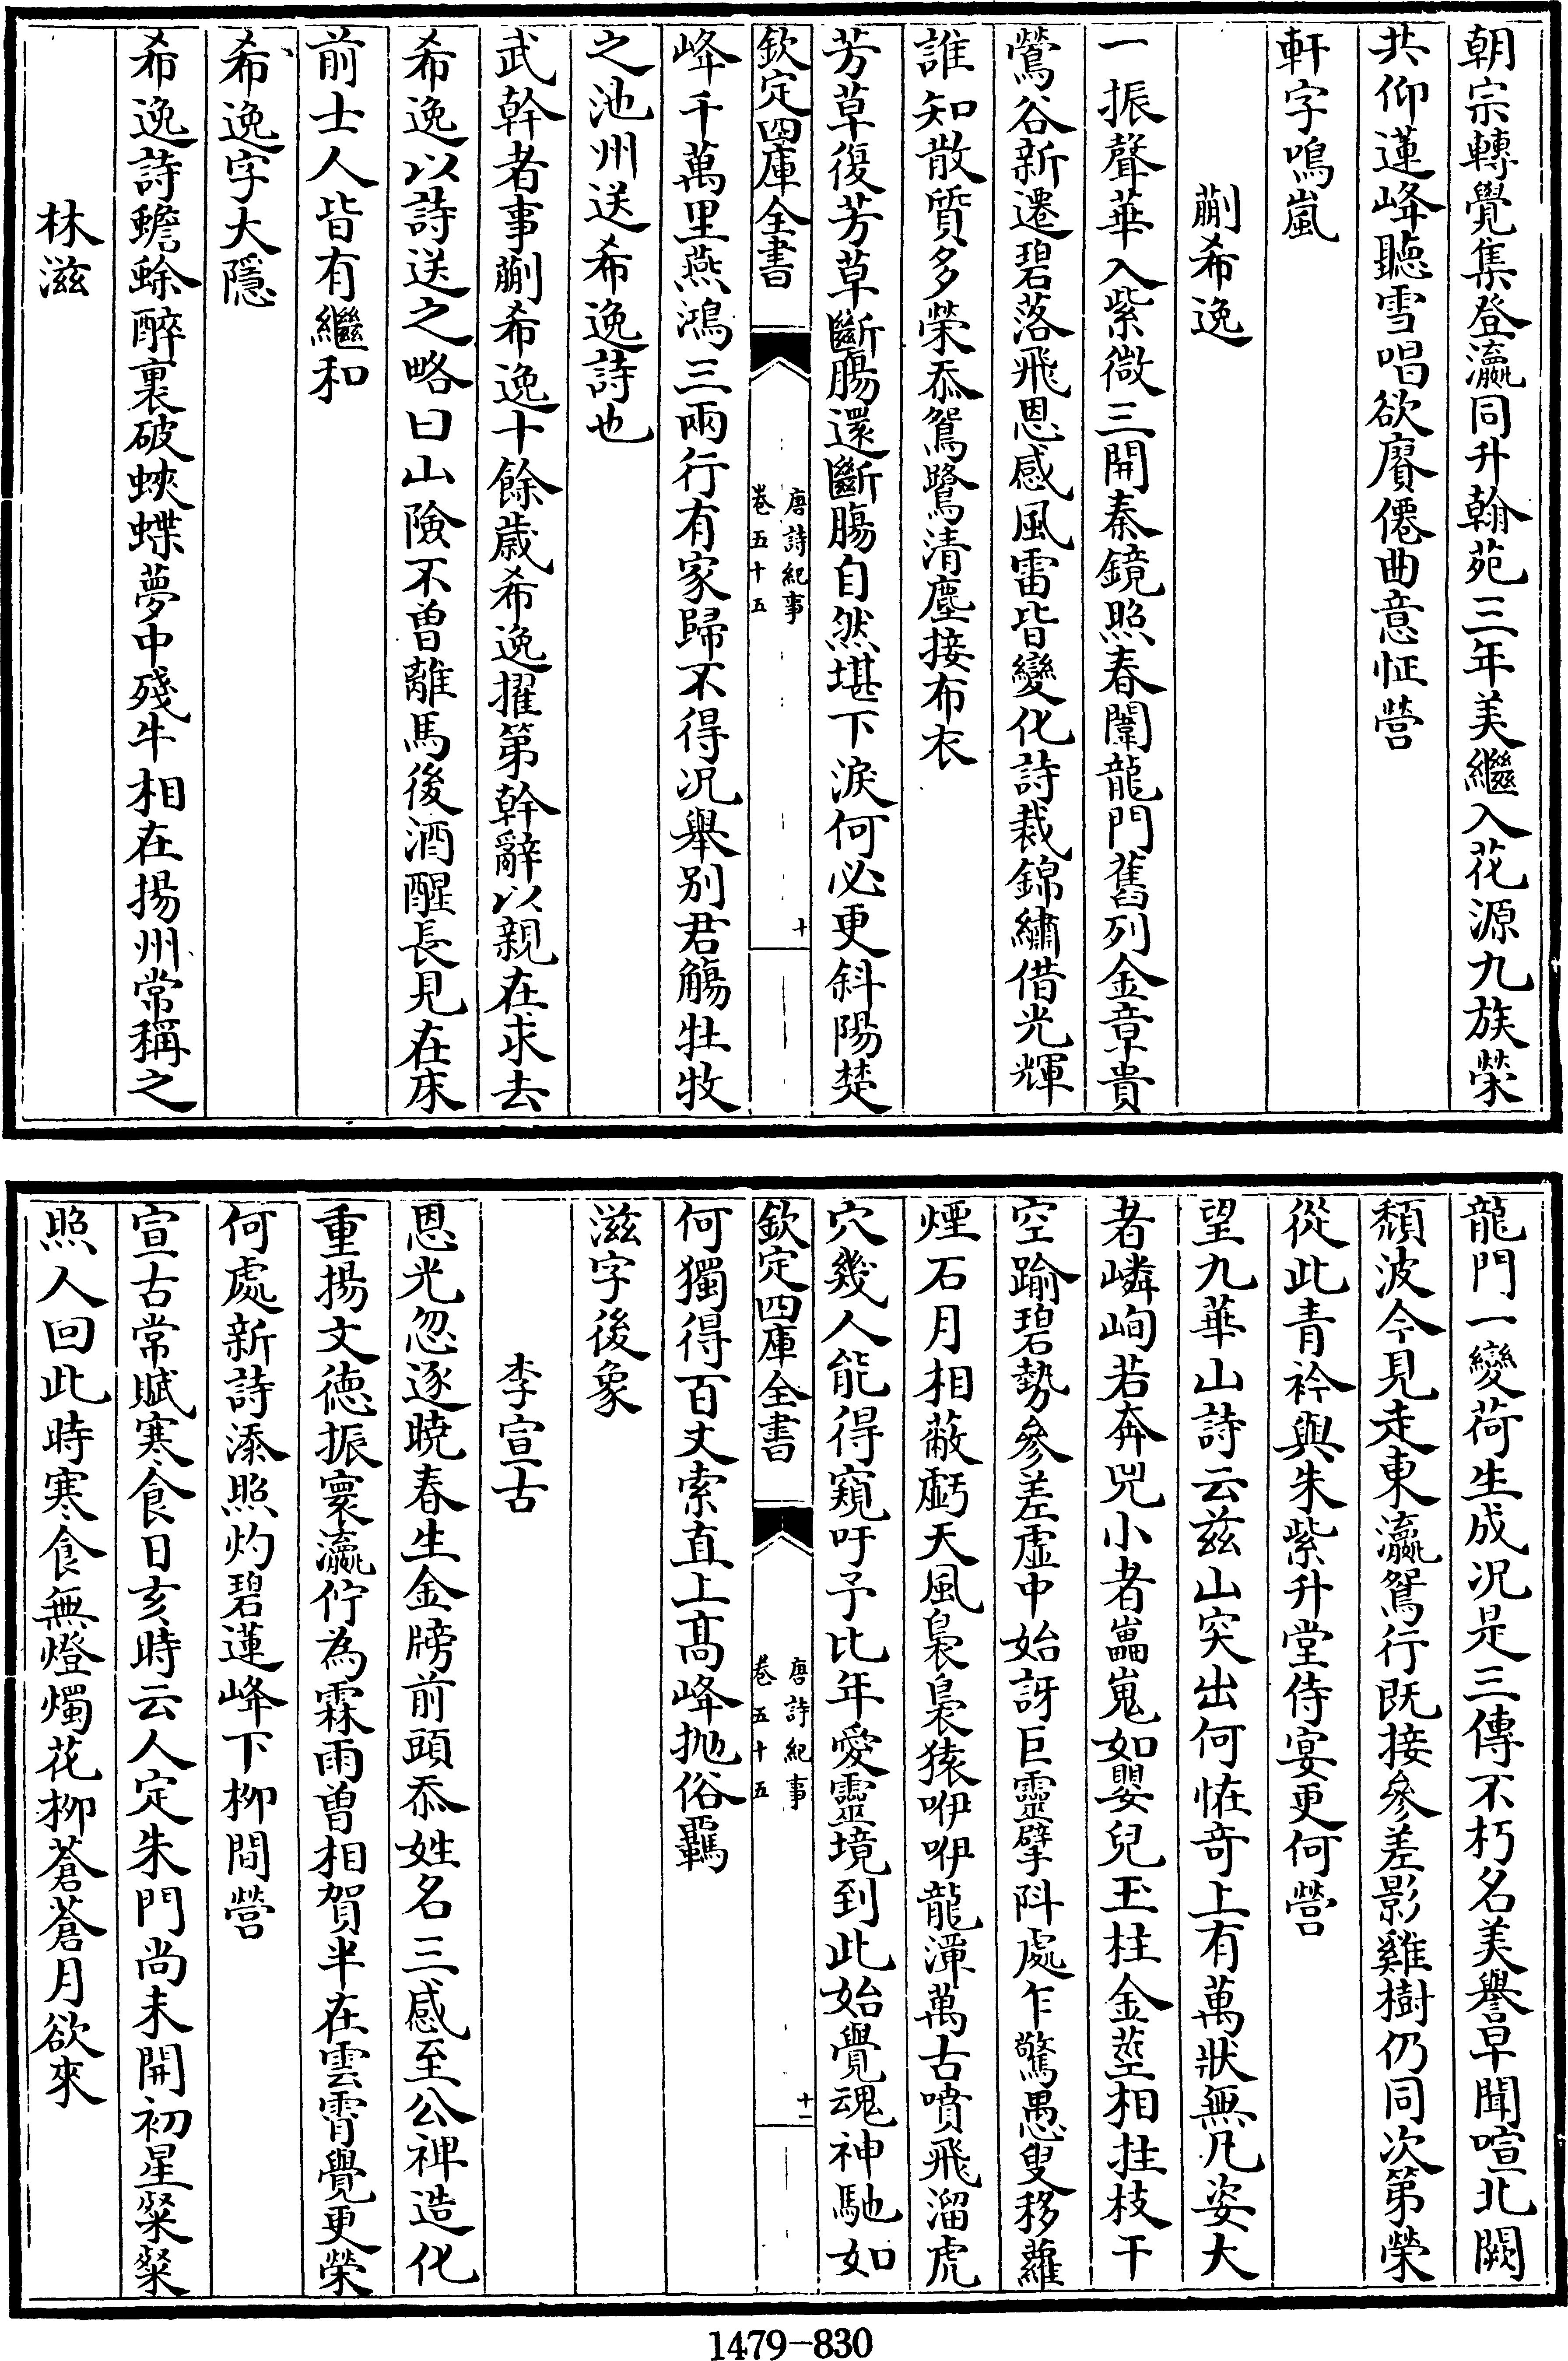 朝宗轉覺集登瀛同升翰苑三年美繼入花源九族榮
共仰蓮峰聽雪唱欲賡僊曲意怔營
軒字鳴嵐
蒯希逸
一振聲華入紫微三開秦鏡照春闈龍門舊列金章貴
鶯谷新遷碧落飛恩感風雷皆變化詩裁錦繡借光輝
誰知散質多榮忝鴛鷺清塵接布衣
芳草復芳草斷腸還斷腸自然堪下淚何必更斜陽楚
欽定四庫全書
唐詩紀事
卷五十五
十
峰千萬里燕鴻三兩行有家歸不得况舉别君觴牡牧
之池州送希逸詩也
武幹者事蒯希逸十餘歲希逸擢第幹辭以親在求去
希逸以詩送之略曰山險不曽離馬後酒醒長見在床
前士人皆有繼和
希逸字大隱
希逸詩蟾蜍醉裏破蛺蝶夢中殘牛相在揚州常稱之
林滋
龍門一變荷生成况是三傳不朽名美譽早聞喧北闕
頽波今見走東瀛鴛行既接參差影雞樹仍同次第榮
從此青衿與朱紫升堂侍宴更何營
望九華山詩云兹山突出何恠奇上有萬狀無凡姿大
者嶙峋若奔兕小者嵓嵬如嬰兒玉柱金莖相拄枝干
空踰碧勢參差虛中始訝巨靈擘陡處乍驚愚叟移蘿
煙石月相蔽虧天風裊裊猿咿咿龍潭萬古噴飛溜虎
穴幾人能得窺吁予比年愛靈境到此始覺魂神馳如
欽定四庫全書
唐詩紀事
卷五十五
十一
何獨得百丈索直上髙峰抛俗羈
滋字後象
李宣古
恩光忽逐曉春生金牓前頭忝姓名三感至公裨造化
重揚文德振寰瀛佇為霖雨曽相賀半在雲霄覺更榮
何處新詩添照灼碧蓮峰下柳間營
宣古常賦寒食日亥時云人定朱門尚未開初星粲粲
照人回此時寒食無燈燭花柳蒼蒼月欲來
1479-830